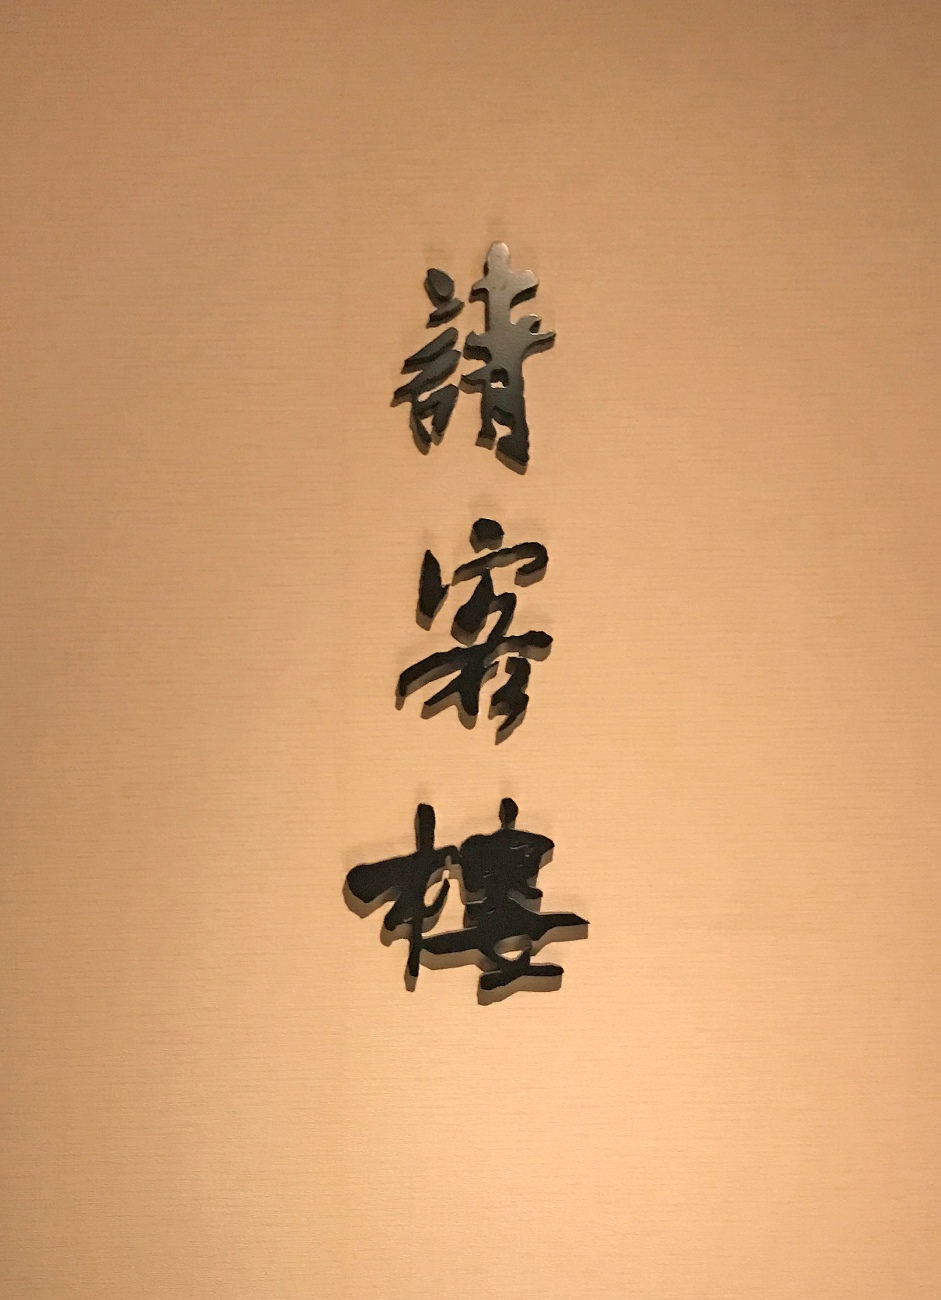 請客樓